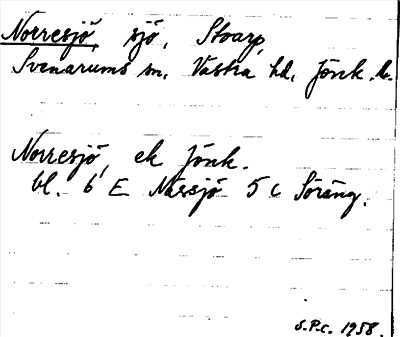 Norresjö, sjö, Stoarp,
Svenarums sn. Västra hd. Jönk. l.
Norresjö, ek Jönk.
bl. 6 E Nässjö 5 c Söräng.
S.P.C. 1958.